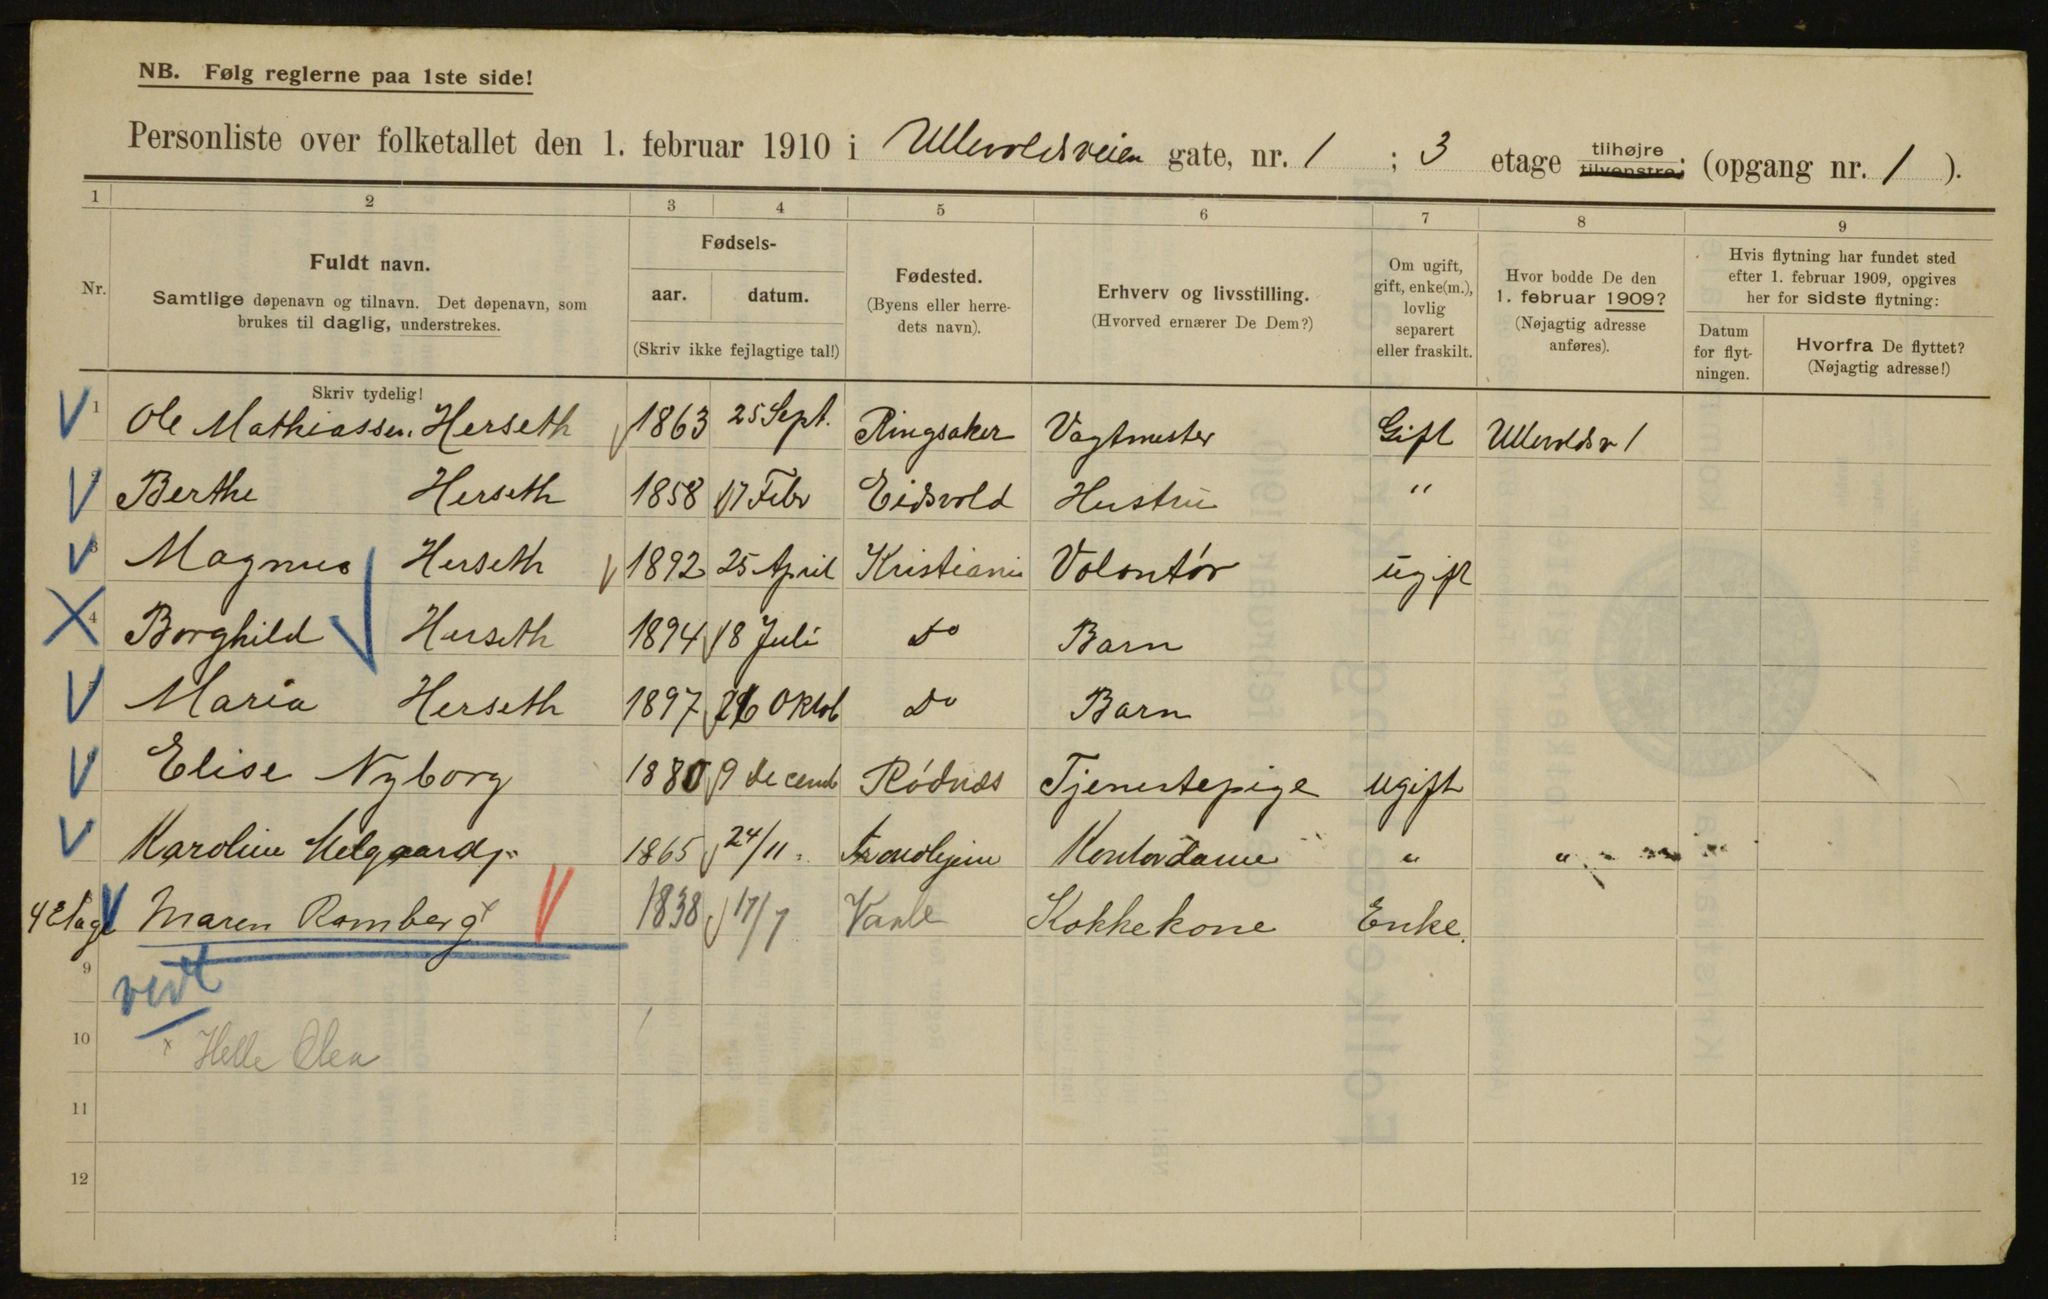 NB. Følg reglerne paa 1ste side!
Personliste over folketallet den 1. februar 1910 i Ullevoldsveien gate, nr. 1 ; 3 etage tilhøjre tilvenstre; (opgang nr. 1 ).
1 2 3 4 5 6 7 8 9
Nr.
Fuldt navn.
Samtlige døpenavn og tilnavn. Det døpenavn, som
brukes til daglig, understrekes.
Skriv tydelig!
Fødsels-
aar. datum.
(Skriv ikke fejlagtige tal!)
Fødested.
(Byens eller herre-
dets navn).
Erhverv og livsstilling.
(Hvorved ernærer De Dem?)
Om ugift,
gift, enke(m.),
lovlig
separert
eller fraskilt.
Hvor bodde De den
1. februar 1909?
(Nøjagtig adresse
anføres).
Hvis flytning har fundet sted
efter 1. februar 1909, opgives
her for sidste flytning:
Datum
for flyt-
ningen.
Hvorfra De flyttet?
(Nøjagtig adresse!)
1 Ole Mathiassen Herseth 1863 25 Sept. Ringsaker Vagtmester Gift Ullevoldsv 1
Berthe Herseth 1858 17 Febr Eidsvold Hustru "
3 Magnus Herseth 1892 25 April Kristiania Volontør ugift
4 Borghild Herseth 1894 18 Juli Do Barn
Maria Herseth 1897 26 Oktob Do Barn
Elise Nyborg 1880 9 decemb Rødnæs Tjenestepige ugift
Karoline Melgaard 1865 24/11 Trondhjem Kontordame " "
4 Etage Maren Romberg x 1838 17/7 Kokkekone Enke.
9
10 x Helle Olea
11
12